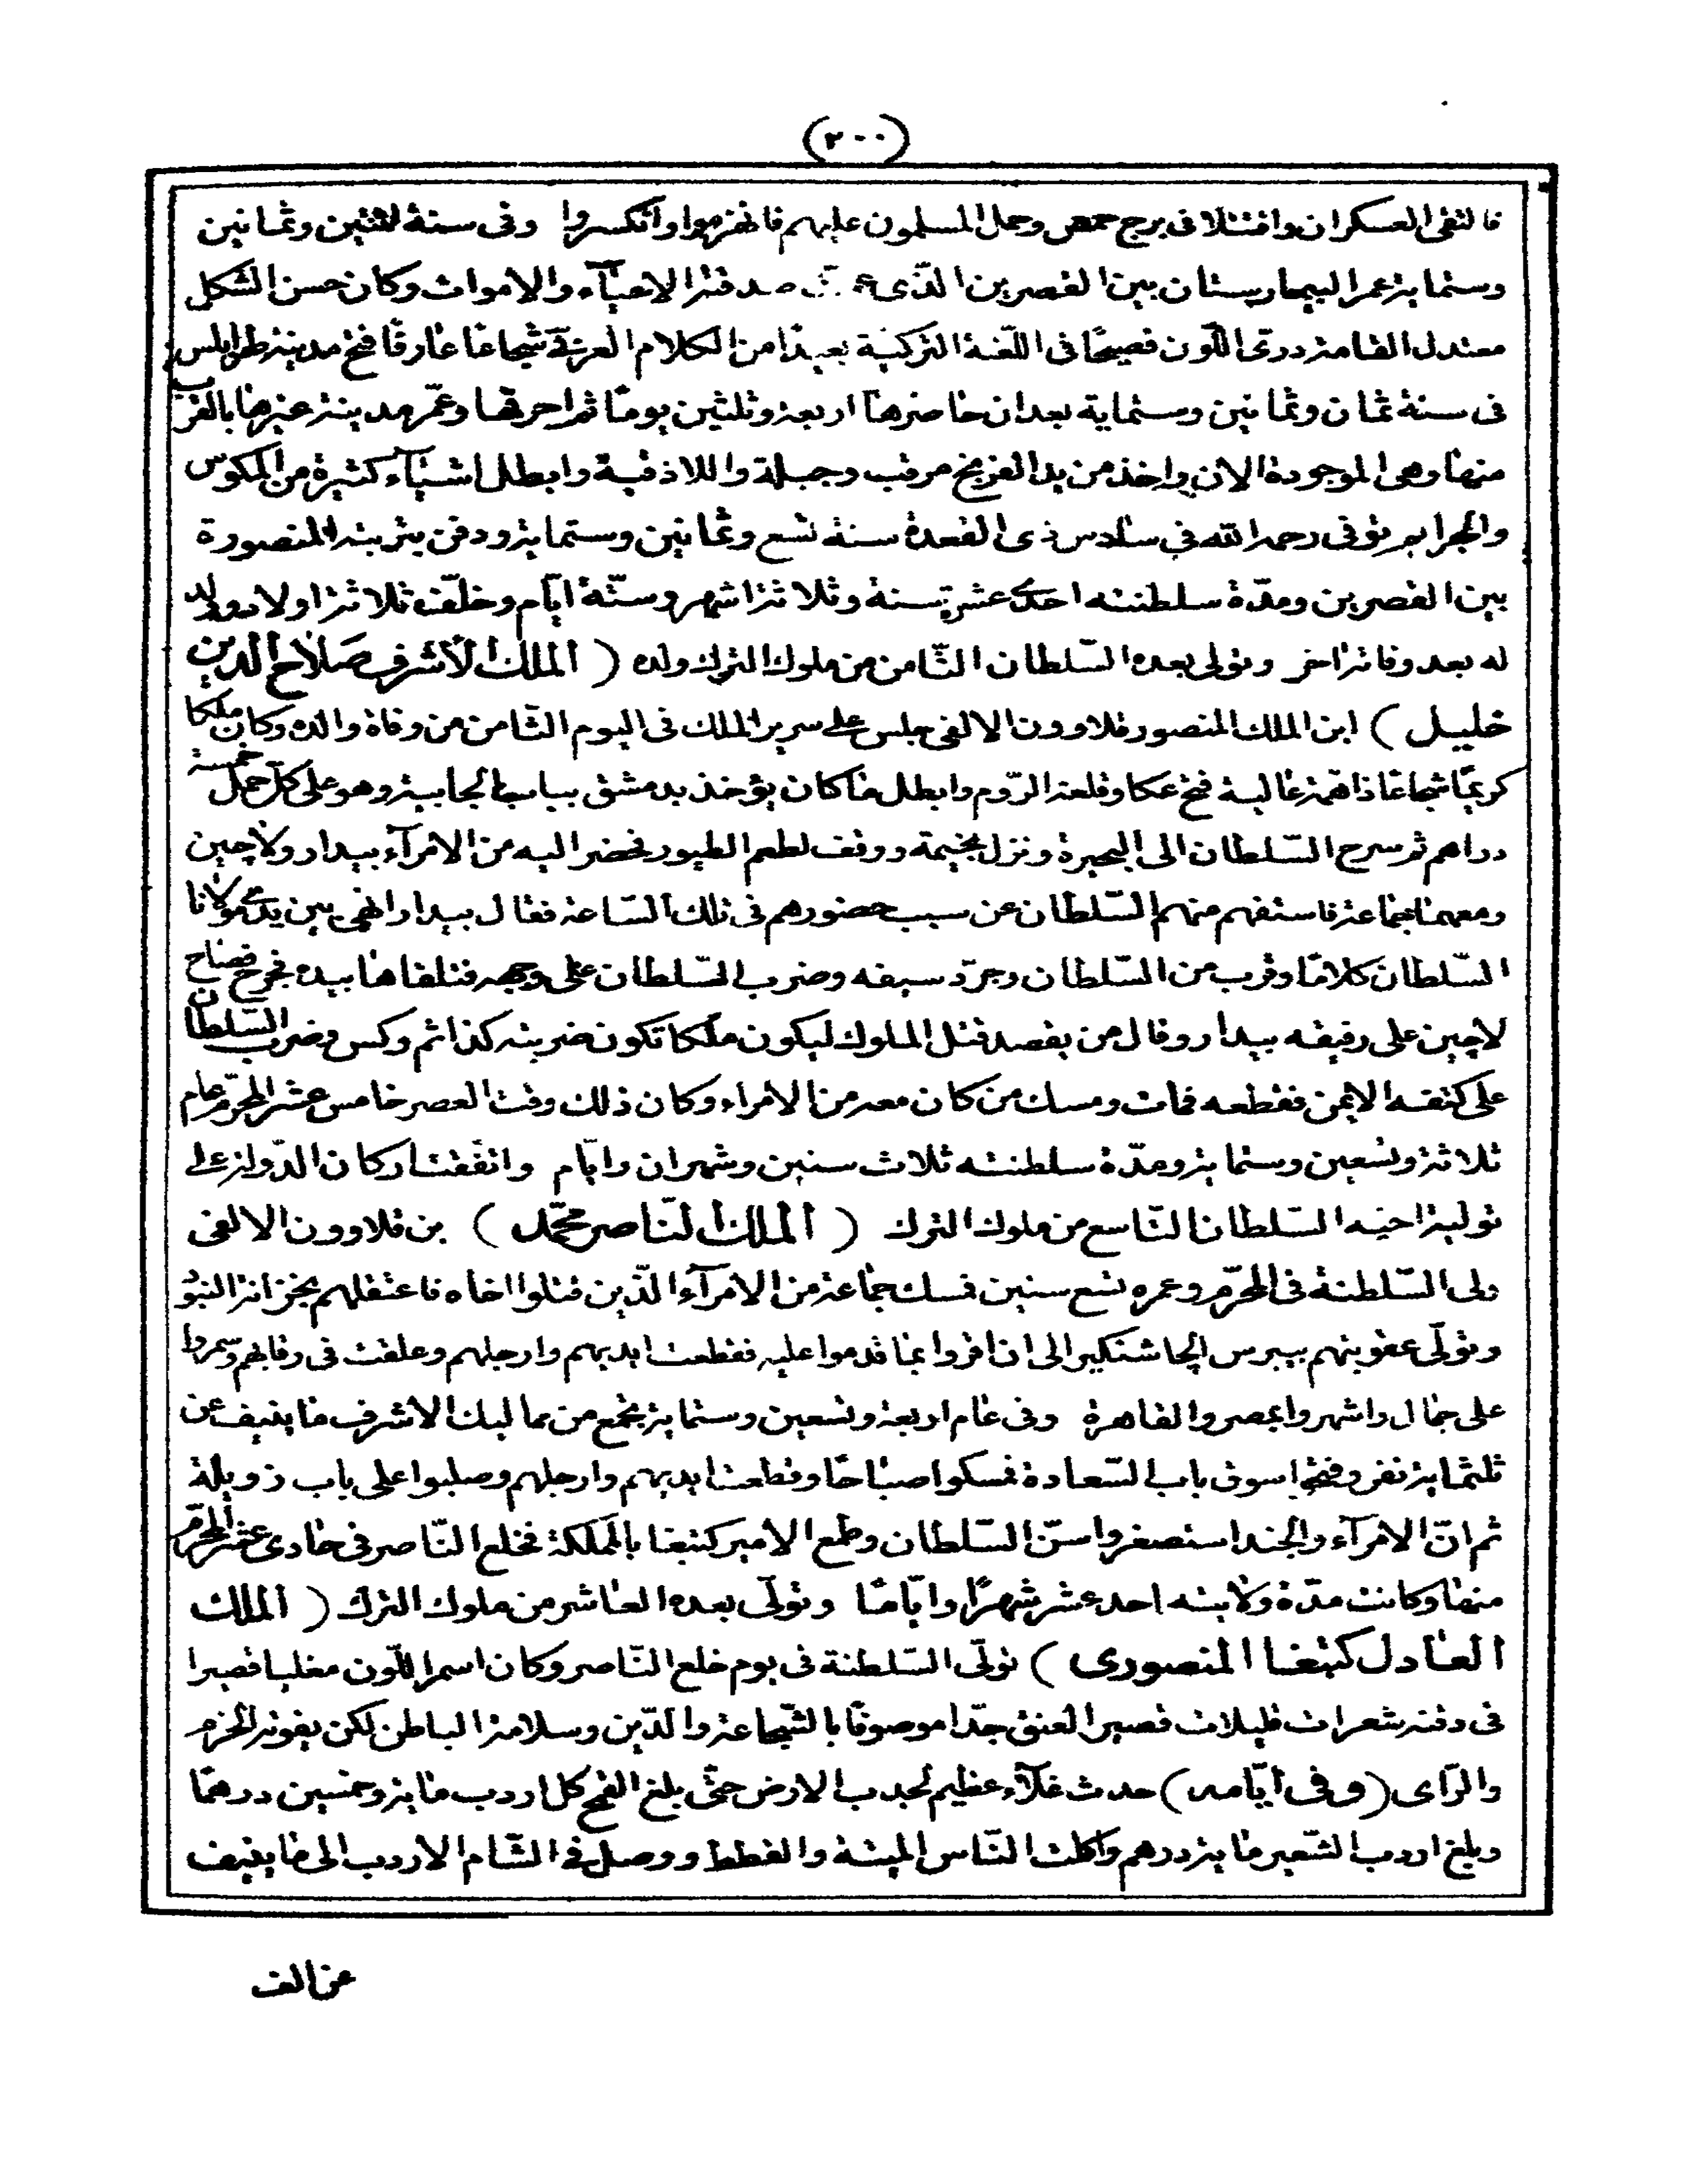 (٢٠٠)
فالتقى العسكران واقتتلا فى برج حمص وحمل المسلمون عليهم فانهزموا وانكسروا وفى سنة اثنتين وثمانين
وستماية عمر البيمارستان بين القصرين الذى صدقة الاحيآء والاموات وكان حسن الشكل
معتدل القامة درىّ اللّون فصيحًا فى اللّغة التركيّة بعيدًا من الكلام العربيّة شجاعًا عارفًا فتح مدينة طرابلس
فى سنة ثمان وثمانين وستماية بعد ان حاصرها اربعة وثلثين يومًا ثم احرقها وعمّر مدينة غيرها بالقرب
منها وهى الموجودة الان واخذ من يد الفرنج مرقب وجبلة واللاذقية وابطل اشيآء كثيرة من المكوس
والجرايم توفى رحمه الله في سادس ذى القعدة سنة تسع وثمانين وستماية ودفن بتربته المنصورة
بين القصرين ومدّة سلطنته احدى عشرة سنة وثلاثة اشهر وستّة ايّام وخلّف ثلاثة اولاد وولد
له بعد وفاته اخر وتولى بعده السّلطان الثّامن من ملوك الترك ولده ( الملك الأشرف صلاح الدين
خليل ) ابن الملك المنصور قلاوون الالفى جلس على سرير الملك فى اليوم الثّامن من وفاة والده وكان ملكا
كريمًا شجاعًا ذا همّة عالية فتح عكا وقلعة الرّوم وابطل ما كان يؤخذ بدمشق بباب الجابية وهو على كلّ حمل خمسة
دراهم ثم سرح السّلطان الى البحيرة ونزل بخيمة ووقف لطعم الطيور فحضر اليه من الامرآء بيدار ولاجين
ومعهما جماعة فاستفهم منهم السّلطان عن سبب حضورهم فى تلك السّاعة فقال بيدار انهى بين يدى مولانا
السّلطان كلامًا وقرب من السّلطان وجرّد سيفه وضرب السّلطان على وجهه فتلقاها بيده فجرح فصاح
لاجين على رفيقه بيدار وقال من يقصد قتل الملوك ليكون ملكا تكون ضربته كذا ثم وكس وضرب السّلطان
على كتفه الايمن فقطعه فمات ومسك من كان معه من الامراء وكان ذلك وقت العصر خامس عشر المحرّم عام
ثلاثة وتسعين وستماية ومدّة سلطنته ثلاث سنين وشهران وايّام واتفقت اركان الدّولة على
تولية اخيه السّلطان التّاسع من ملوك الترك ( الملك النّاصر محمّد ) بن قلاوون الالفى
ولى السّلطنة فى المحرّم وعمره تسع سنين فمسك جماعة من الامرآء الّذين قتلوا اخاه فاعتقلهم بخزانة البنود
وتولّى عقوبتهم بيبرس الجاشنكير الى ان اقروا بما قدموا عليه فقطعت ايديهم وارجلهم وعلقت فى رقابهم وسمروا
على جمال واشهروا بمصر والقاهرة وفى عام اربعة وتسعين وستماية تجمع من مماليك الاشرف ما ينيف عن
ثلثماية نفر وفتحوا سوق باب السّعادة فمسكوا صباحًا وقطعت ايديهم وارجلهم وصلبوا على باب زويلة
ثم انّ الامرآء والجند استصغروا سنّ السّلطان وطمع الامير كتبغا بالمملكة فخلع النّاصر فى حادى عشر المحرّم
منها وكانت مدّة ولايته احد عشر شهرًا وايّامًا وتولّى بعده العاشر من ملوك الترك ( الملك
العادل كتبغا المنصورى ) تولّى السّلطنة فى يوم خلع النّاصر وكان اسمر اللّون مغليا قصيرا
فى دقنه شعرات قليلات قصير العنق جدّا موصوفًا بالشّجاعة والدّين وسلامة الباطن لكن يفوته الحزم
والرّاى ( وفى ايّامه ) حدث غلآء عظيم لجدب الارض حتّى بلغ القمح كل اردب ماية وخمسين درهمًا
وبلغ اردب الشّعير ماية درهم واكلت النّاس الميتة والقطط ووصل فى الشّام الاردب الى ما ينيف
عن الف